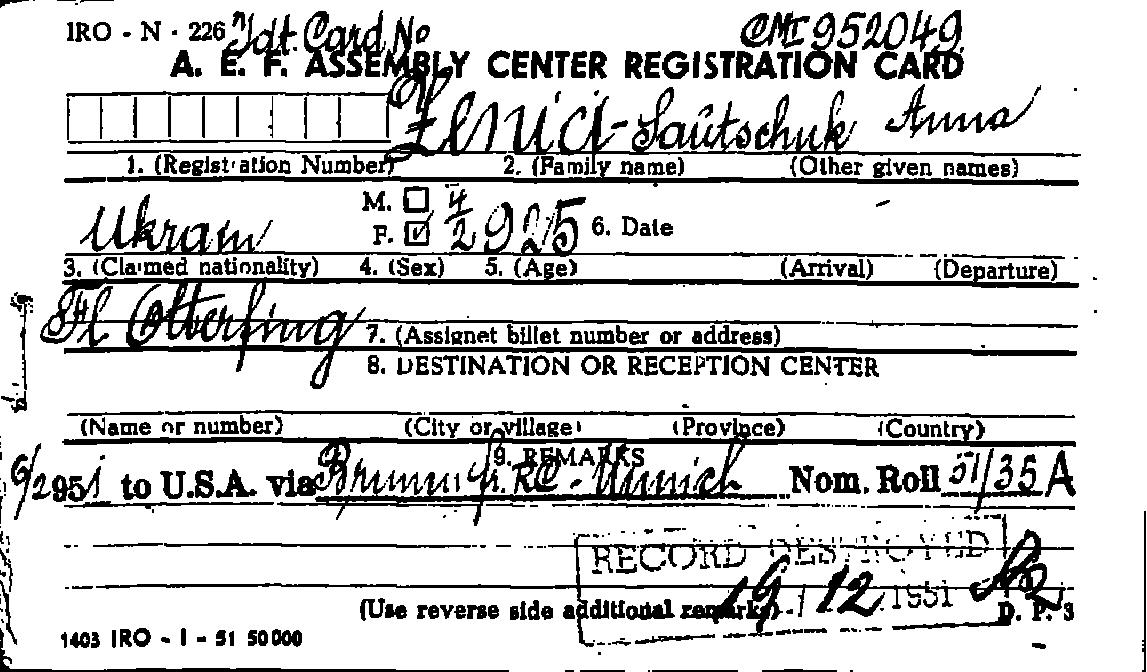 IRO - N - 226 Idt. Card No CMI 952049
A. E. F. ASSEMBLY CENTER REGISTRATION CARD
Zenici-Sautschuk Anna
1. (Registration Number) 2. (Family name) (Other given names)
Ukrain M. ☐ 4/2 925 6. Date
F. ☑
3. (Claimed nationality) 4. (Sex) 5. (Age) (Arrival) (Departure)
Fl Otterfing 7. (Assignet billet number or address)
8. DESTINATION OR RECEPTION CENTER
(Name or number) (City or village) (Province) (Country)
9. REMARKS
6/2 951 to U.S.A. via RC - Munich Nom. Roll 51/35 A
RECORD DESTROYED
19/12 1951
(Use reverse side additional remarks) D. P. 3
1403 IRO - I - 51 50000